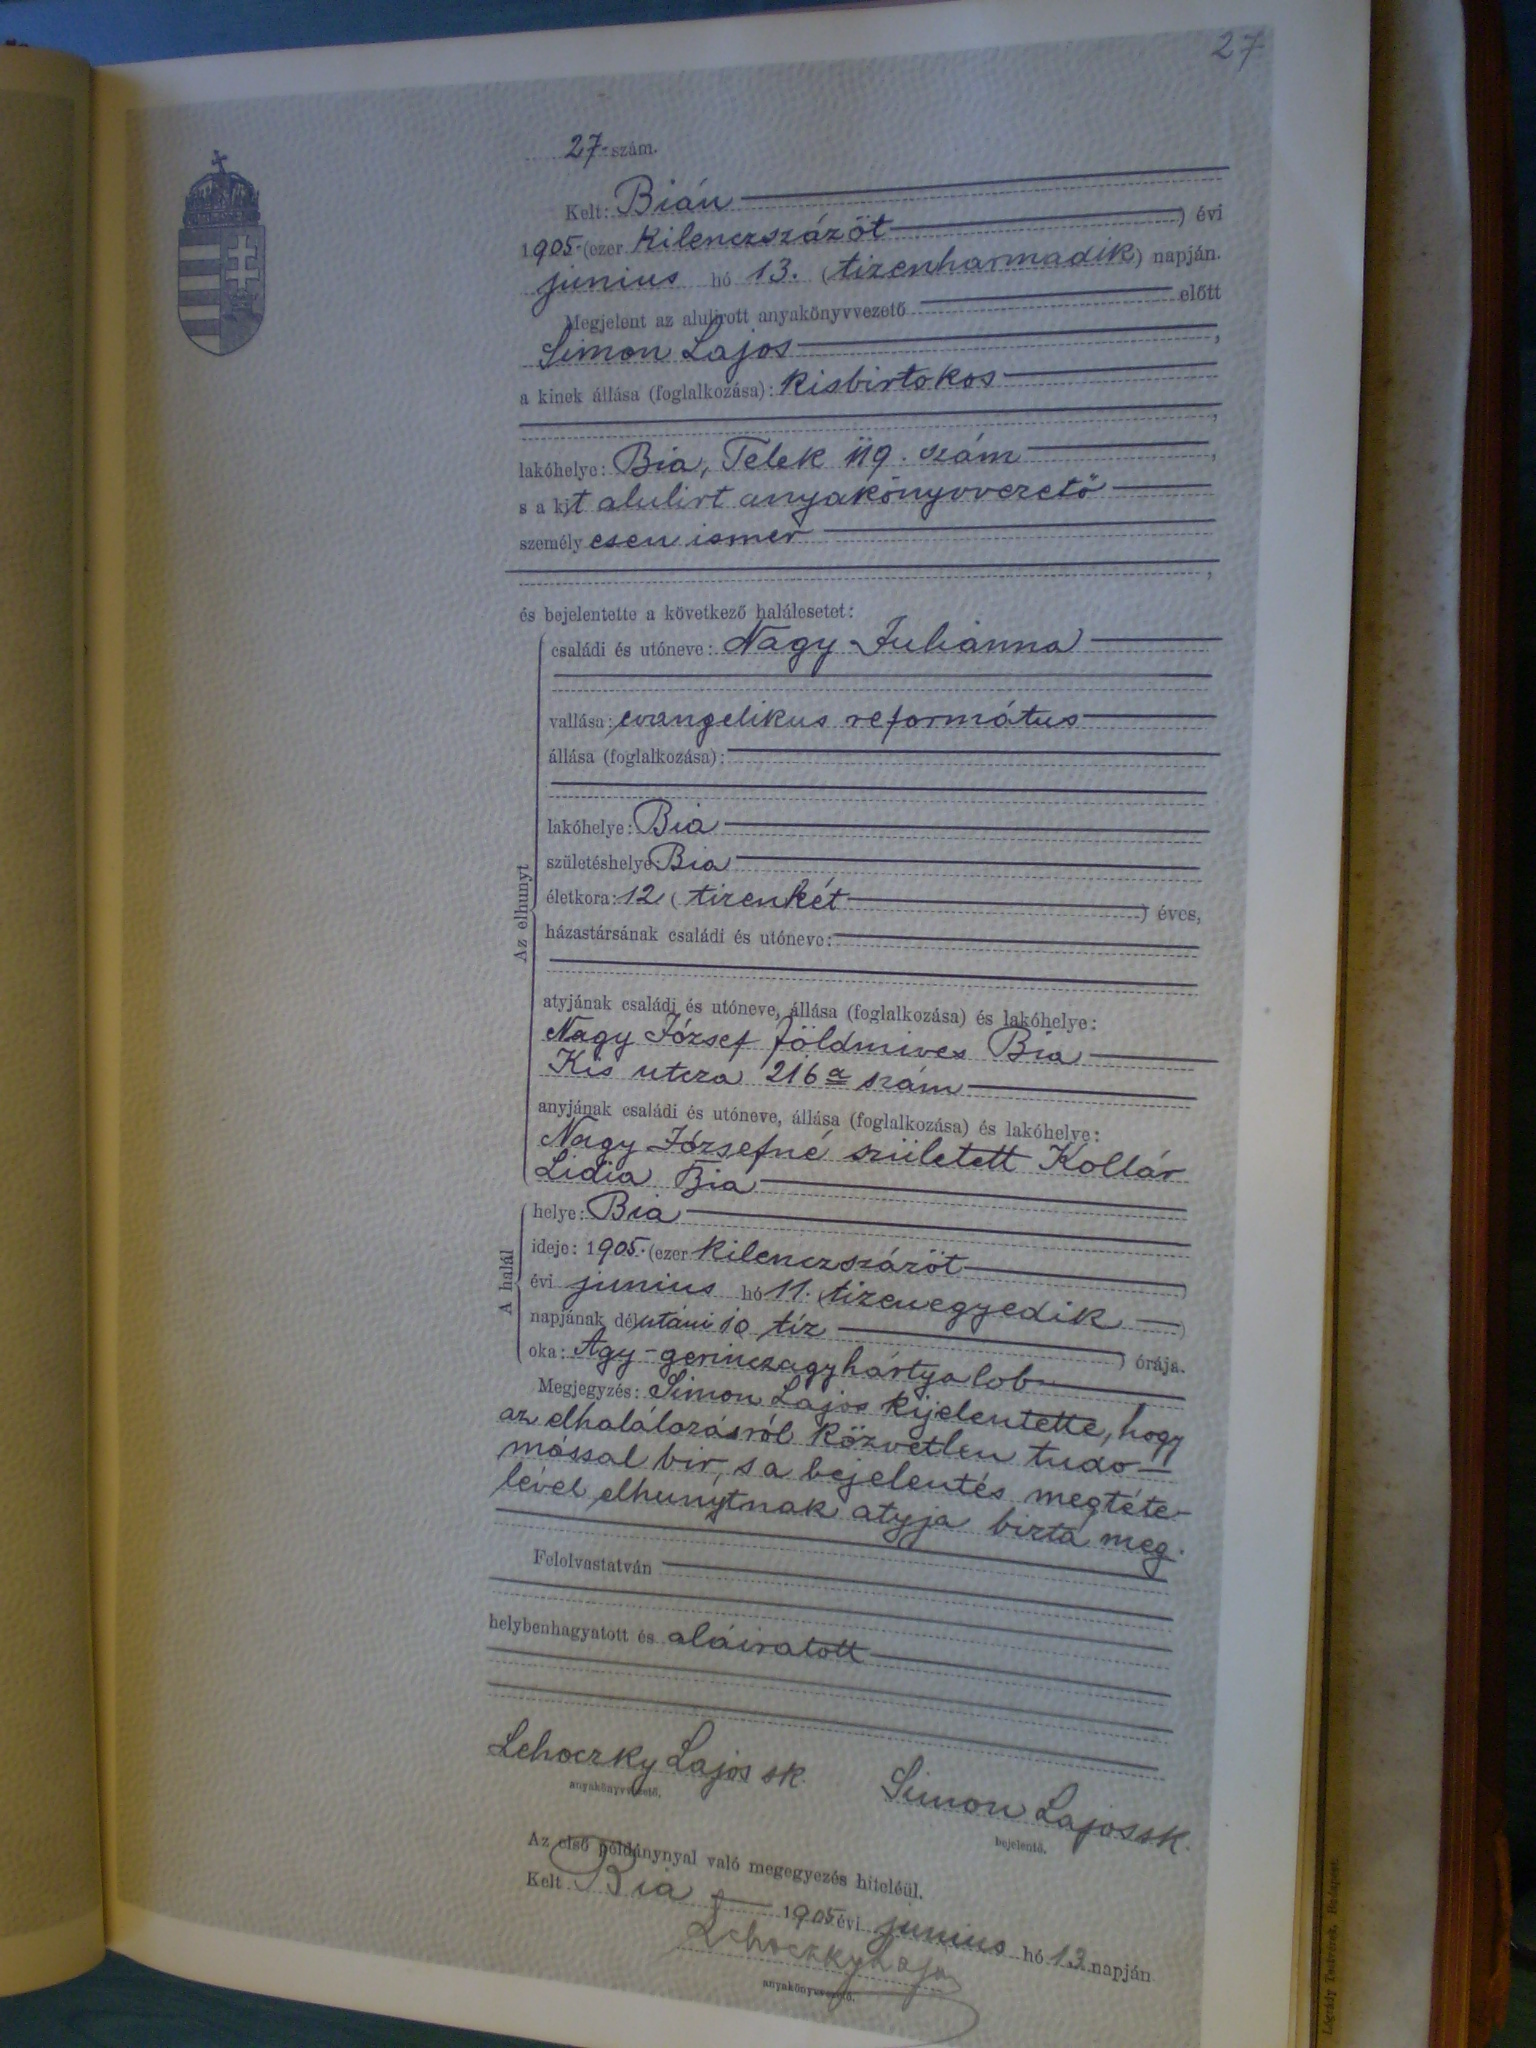 27
27. szám.
Kelt: Bián
1905. (ezer kilenczszázöt) évi
junius hó 13. (tizenharmadik) napján.
Megjelent az alulirott anyakönyvvezető előtt
Simon Lajos,
a kinek állása (foglalkozása): kisbirtokos
,
lakóhelye: Bia, Telek 119. szám,
s a kit alulirt anyakönyvvezető
személyesen ismer
,
és bejelentette a következő halálesetet:
Az elhunyt
családi és utóneve: Nagy Julianna
vallása: evangelikus református
állása (foglalkozása):
lakóhelye: Bia
születéshelye: Bia
életkora: 12 (tizenkét) éves,
házastársának családi és utóneve:
atyjának családi és utóneve, állása (foglalkozása) és lakóhelye:
Nagy József földmives Bia
Kis utcza 216 a szám
anyjának családi és utóneve, állása (foglalkozása) és lakóhelye:
Nagy Józsefné született Kollár
Lidia Bia
A halál
helye: Bia
ideje: 1905. (ezer kilenczszázöt)
évi junius hó 11. (tizenegyedik)
napjának délutáni 10 tíz) órája.
oka: Agy-gerinczagyhártyalob
Megjegyzés: Simon Lajos kijelentette, hogy
az elhalálozásról közvetlen tudo-
mással bir, s a bejelentés megtéte-
lével elhunytnak atyja bizta meg.
Felolvastatván
helybenhagyatott és aláiratott
Lehoczky Lajos sk.
anyakönyvvezető.
Simon Lajos sk.
bejelentő.
Az első példánynyal való megegyezés hiteléül.
Kelt Bia 1905 évi junius hó 13 napján
Lehoczky Lajos
anyakönyvvezető.
Légrády Testvérek, Budapest.